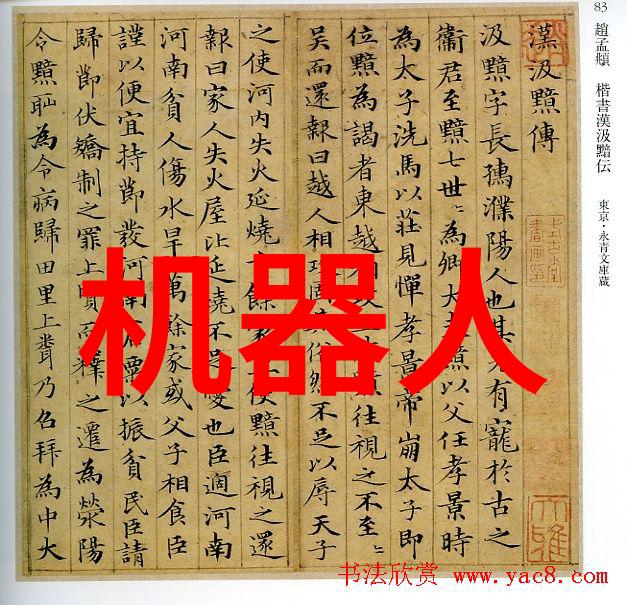 83 趙孟頫 楷書漢汲黯伝 東京・永青文庫蔵
漢汲黯傳
汲黯字長孺濮陽人也其有寵於古之
衛君至黯七世〻為卿大黯以父任孝景時
為太子洗馬以莊見憚孝景帝崩太子即
位黯為謁者東越相攻上黯往視之不至〻
吳而還報曰越人相攻固其俗然不足以辱天子
之使河内失火延燒餘家上使黯往視之還
報曰家人失火屋比延燒不足憂也臣適河南
河南貧人傷水旱萬餘家或父子相食臣
謹以便宜持節發河南倉粟以振貧民臣請
歸節伏矯制之罪上賢而釋之遷為滎陽
令黯恥為令病歸田里上聞乃召拜為中大
机器人
书法欣赏 www.yac8.com